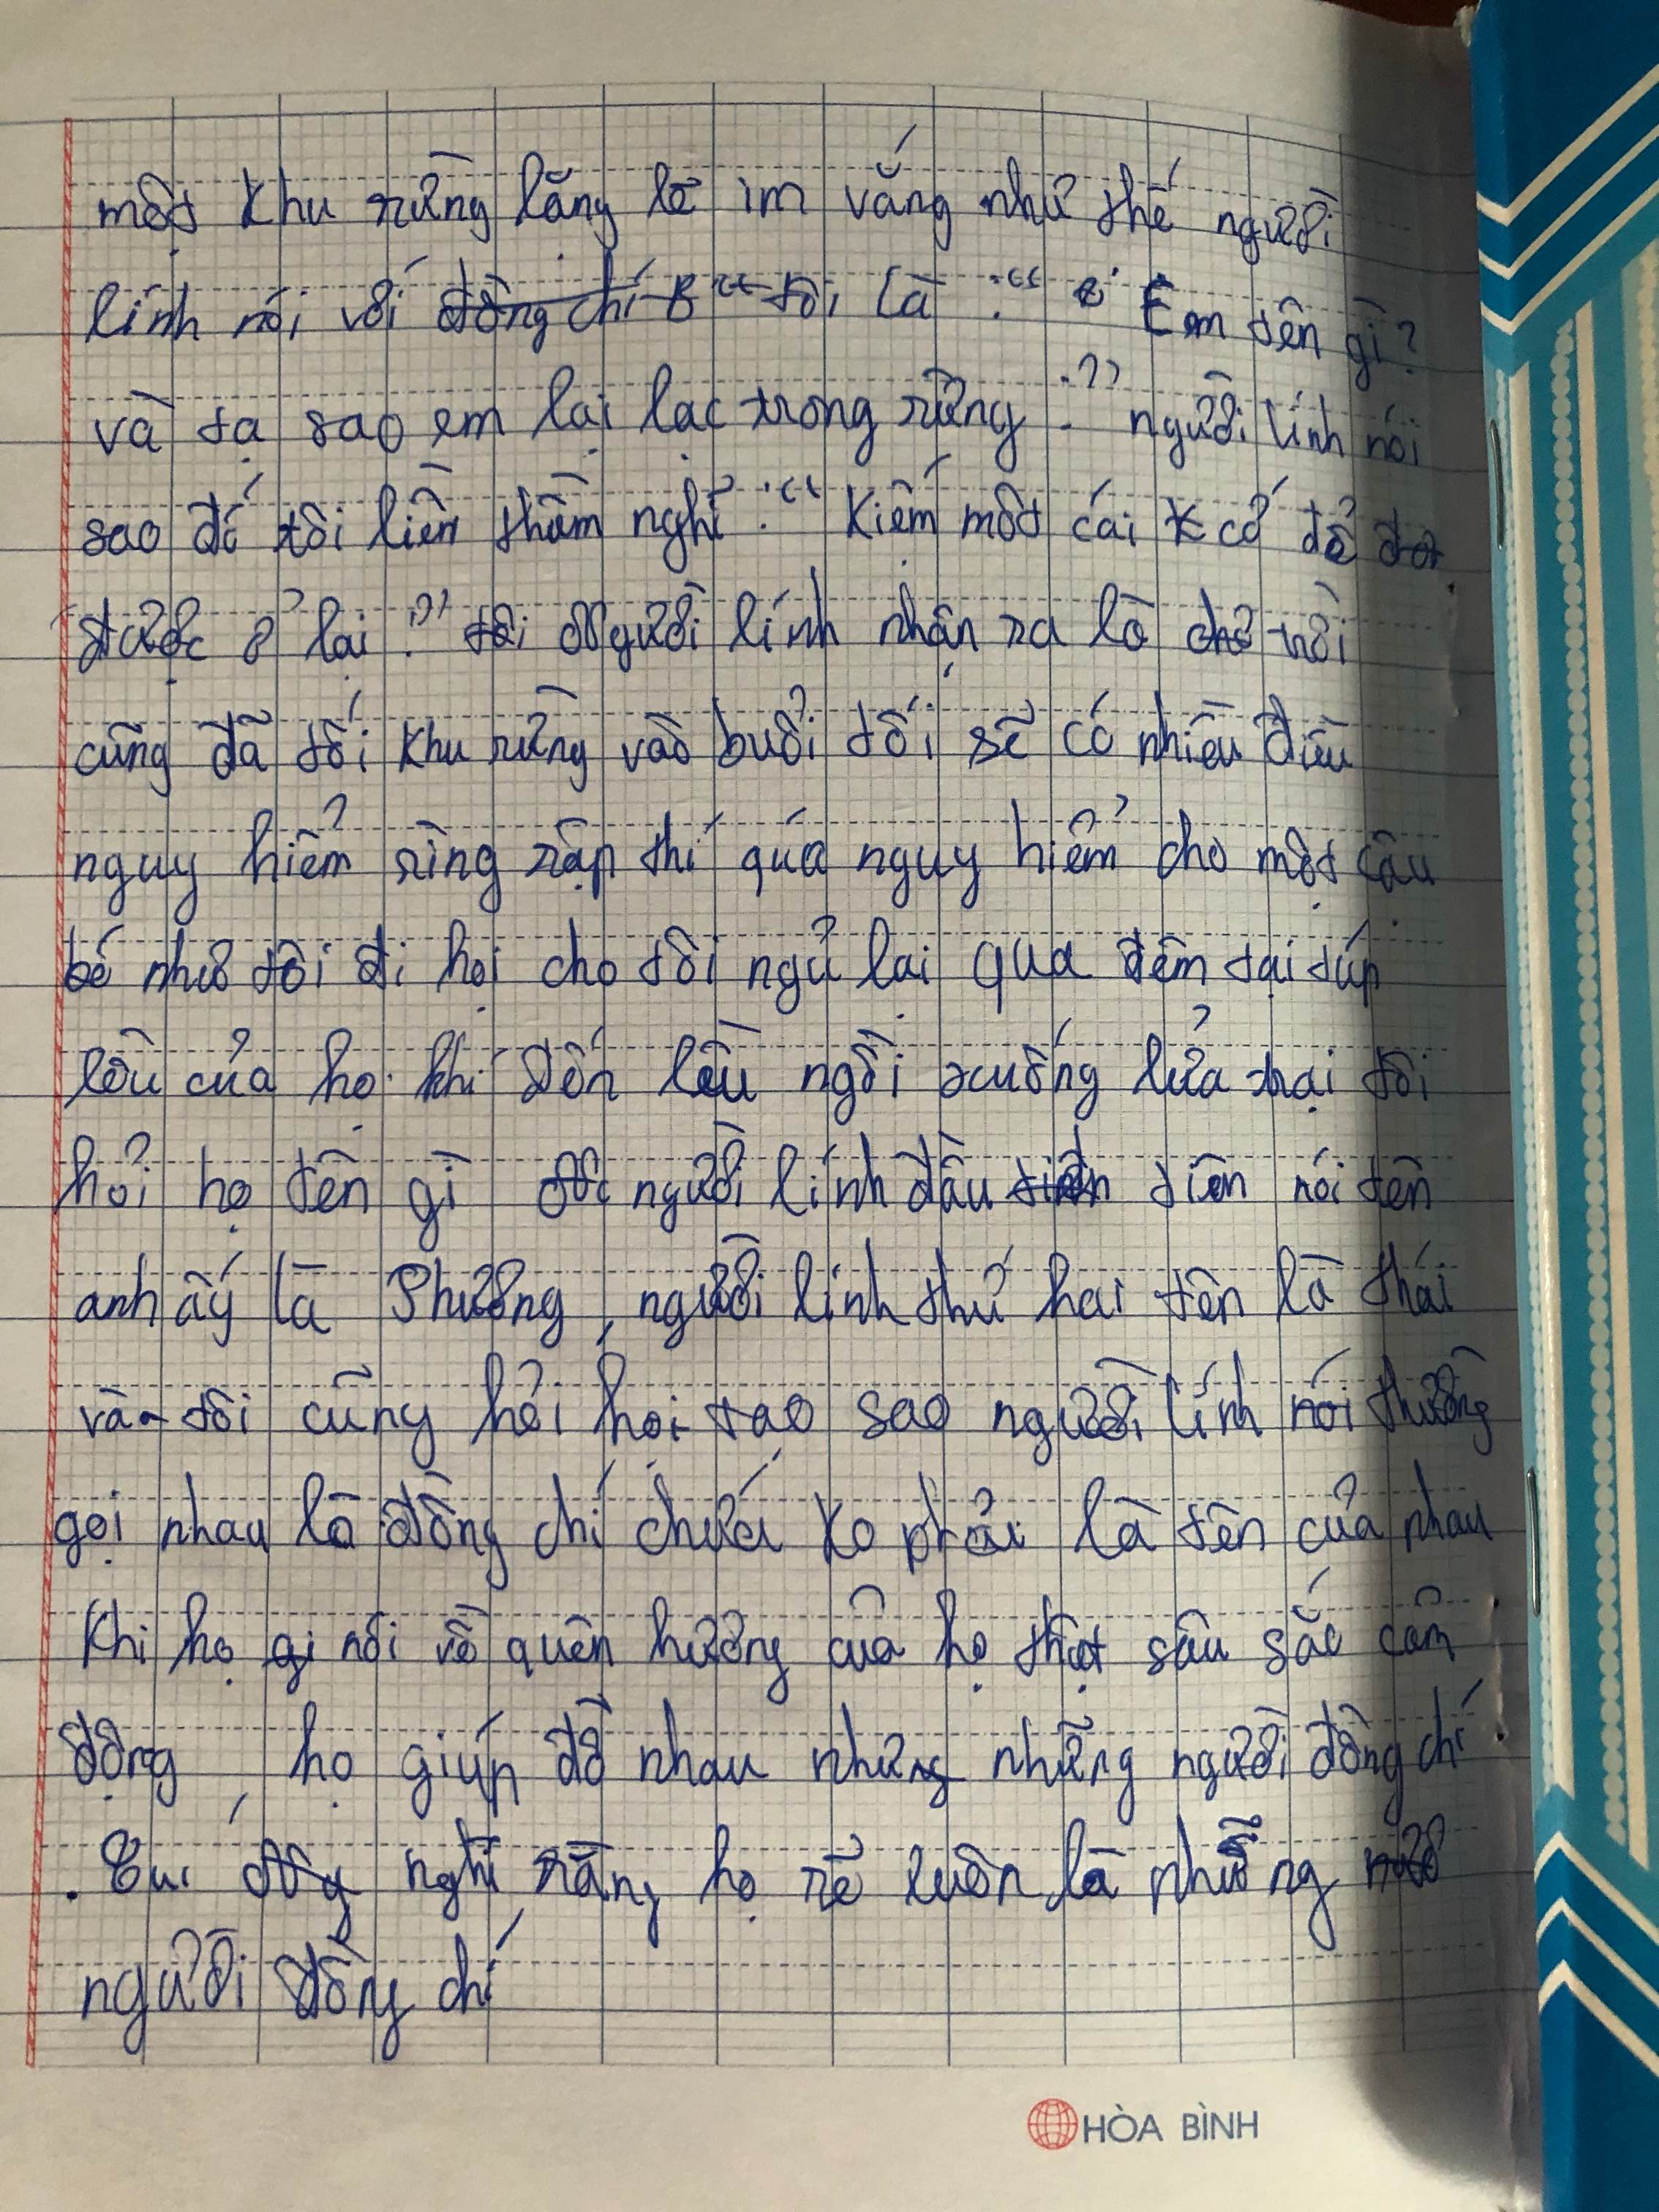 một khu rừng lăng lẽ im vắng như thế người
lính nói với đồng chí B " tôi là : " Em tên gì?
và tạ sao em lại lạc trong rừng ?" người lính nói
sao đó tôi liền thầm nghĩ : " Kiếm một cái cớ để
được ở lại ?" người lính nhận ra là trời
cũng đã tối khu rừng vào buổi tối sẽ có nhiều điều
nguy hiểm rìng rập thí quá nguy hiểm cho một câu
bé như tôi đi họi cho tôi ngủ lại qua đêm tại túp
lều của họ. khi đến lều ngồi xuống lửa trại tôi
hỏi họ tên gì người lính đầu tiên nói tên
anh ấy là Phương, người lính thứ hai tên là thái
và tôi cũng hỏi họi tạo sao người lính nói thường
gọi nhau là đồng chí chứa ko phải là tên của nhau
Khi họ nói về quên hương của họ thật sâu sắc cảm
động, họ giúp đỡ nhau những người đồng chí
. nghĩ rằng họ rẽ luôn là những
người đồng chí
HÒA BÌNH